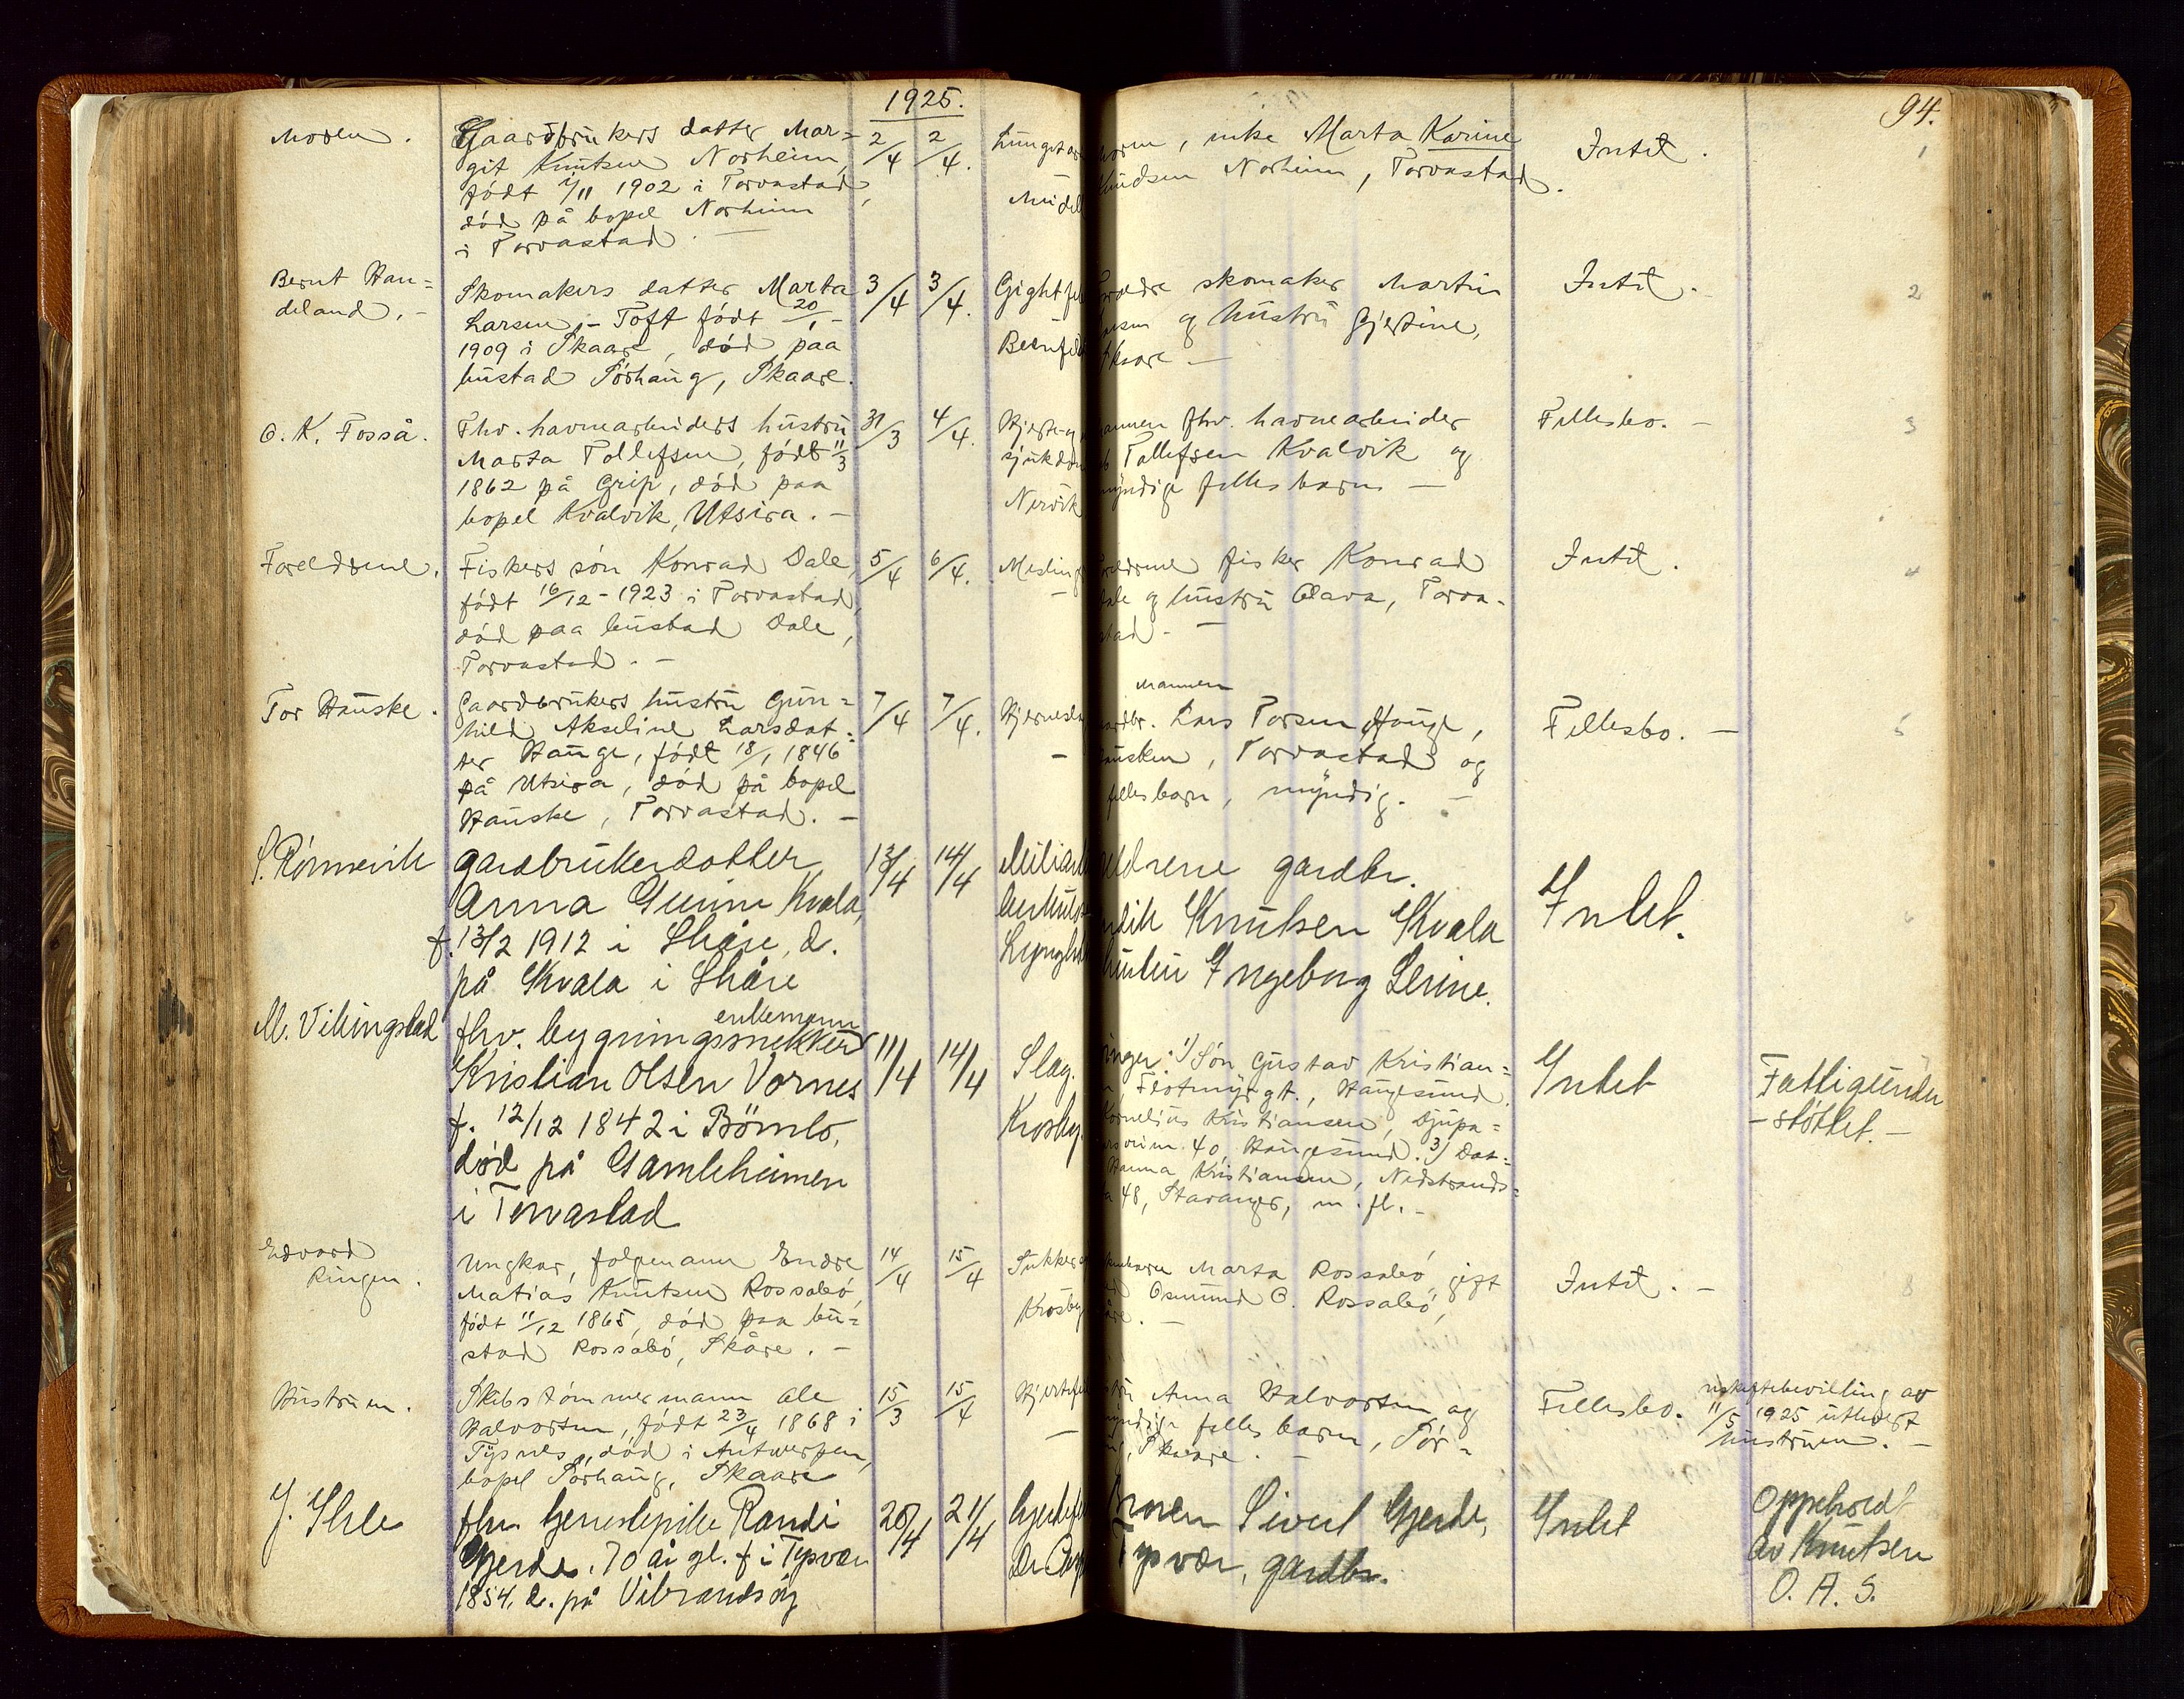 1925.
94.
Moren.
Gaardbrukers datter Mar=
git Knutsen Norheim,
født 7/11 1902 i Torvastad,
død på bopel Norheim
i Torvastad.
2/4
2/4.
Lungetu
Midel
moren, enke Marta Karine
Knudsen Norheim, Torvastad.
Intet.
1
Bernt Hau=
deland.-
Skomakers datter Marta
Larsen,- Toft født 20/1-
1909 i Skaare, død paa
bustad Sørhaug, Skaare.
3/4
3/4.
Gightfe
foreldre skomaker Martin
Larsen og hustru Gjertine,
Skaare -
Intet.-
2
O. K. Fosså.
Fhv. havnearbeiders hustru
Marta Tollefsen, født 11/3
1862 på Grip, død paa
bopel Kvalvik, Utsira. -
31/3
4/4.
Hjerte-
sjukdom
Nervik
mannen fhv. havnearbeider
Tollefsen Kvalvik og
myndige fellesbarn -
Fellesbo. -
3
Foreldrene.
Fiskers søn Konrad Dale,
født 16/12-1923 i Torvastad,
død paa bustad Dale,
Torvastad. -
5/4
6/4.
Mesling
foreldrene fisker Konrad
Dale og hustru Olava, Torva-
stad. -
Intet.
4
Tor Hauske.
Gaardbrukers hustru Gun=
hild Akseline Larsdat=
ter Hauge, født 18/1 1846
på Utsira, død på bopel
Hauske, Torvastad. -
7/4
7/4.
Hjernesla
-
mannen
gardbr. Lars Torsen Hauge,
Hausken, Torvastad og
fellesbarn, myndig. -
Fellesbo. -
5
S. Rønnevik
gardbrukerdatter
Anna Gurine Kvala,
f. 13/2 1912 i Skåre, d.
på Kvala i Skåre
13/4
14/4
Miliær
tuberkulose
Lyngho
foreldrene gardbr.
Knutsen Kvala
hustru Ingeborg Serine.
Intet.
6
M. Vikingstad
enkemann
fhv. bygningssnekker
Kristian Olsen Vornes
f. 12/12 1842 i Bömlo,
død på Gamleheimen
i Torvastad
11/4
14/4
Slag.
Krosby.
1) Søn Gustav Kristian=
Flotmyrgt., Haugesund.
Kornelius Kristiansen, Djupa=
40, Haugesund. 3) Dat=
Hanna Kristiansen, Nedstrands=
48, Stavanger, m. fl. -
Intet
Fattigunder
-støttet. -
Edvard
Ringen.
Ungkar, folgemann Endre
Matias Knutsen Rossabø,
født 11/12 1865, død paa bu=
stad Rossabø, Skåre. -
14/4
15/4
Sukker
Krosby
Marta Rossabø, gift
Osmund O. Rossabø,
Skåre. -
Intet. -
8
Hustruen.
Skibstømmermann Ole
Halvorsen, født 23/4 1868 i
Tysnes, død i Antwerpen,
bopel Sørhaug, Skaare
15/3
15/4
Hjertefe
-
hustru Anna Halvorsen og
myndige felles barn, Sør-
haug, Skaare. -
Fellesbo.
uskiftebevilling av
11/5 1925 utlevert
hustruen. -
J. Ihle
fhv. tjenestepike Randi
Gjerde. 70 år gl. f. i Tysvær
1854. d. på Vibrandsøy
20/4
21/4
Hjertefe
Broren Sivert Gjerde,
Tysvær, gardbr.
Intet
Oppholdt
av Knutsen
O. A. S.